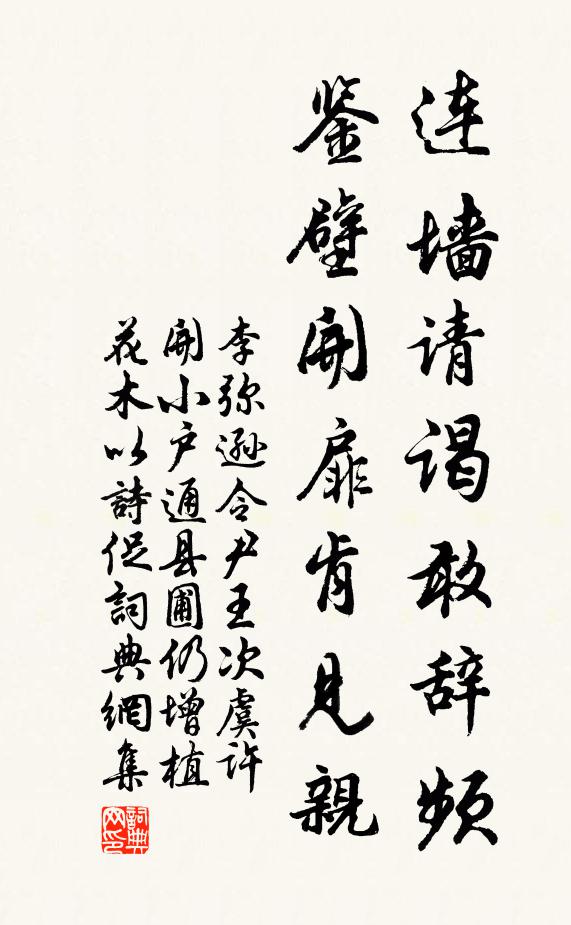 连墙请谒敢辞频
鉴壁開扉肯见親
李弥遜令尹王次虞许
開小户通县圃仍增植
花木以詩促詞典網集
詞典
网印